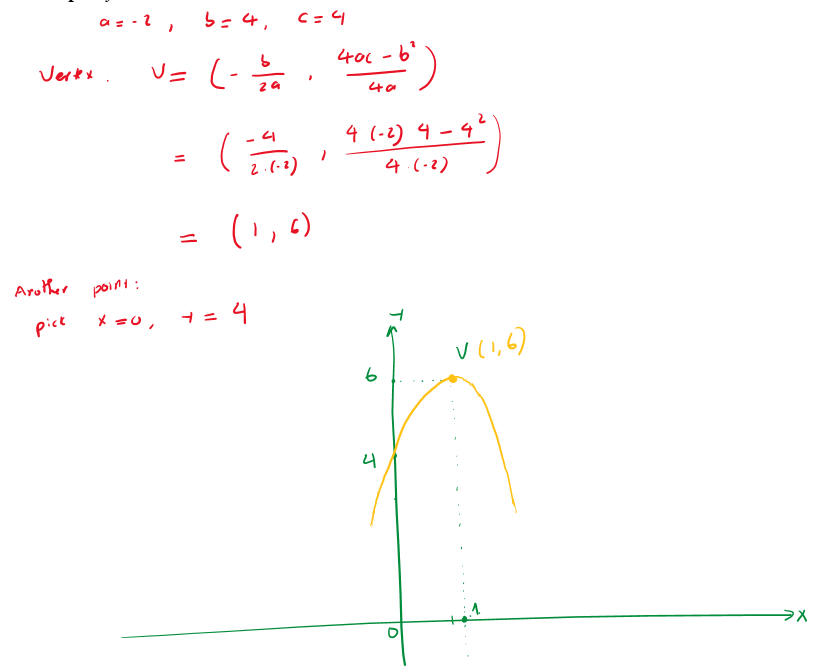 a = -2 , b = 4, c = 4
Vertex. V = ( - b/2a , (4ac - b²)/4a )
= ( -4/(2.(-2)) , (4 (-2) 4 - 4²)/(4.(-2)) )
= (1, 6)
Another point:
pick x = 0, y = 4
y
V (1, 6)
6
4
1
0
x